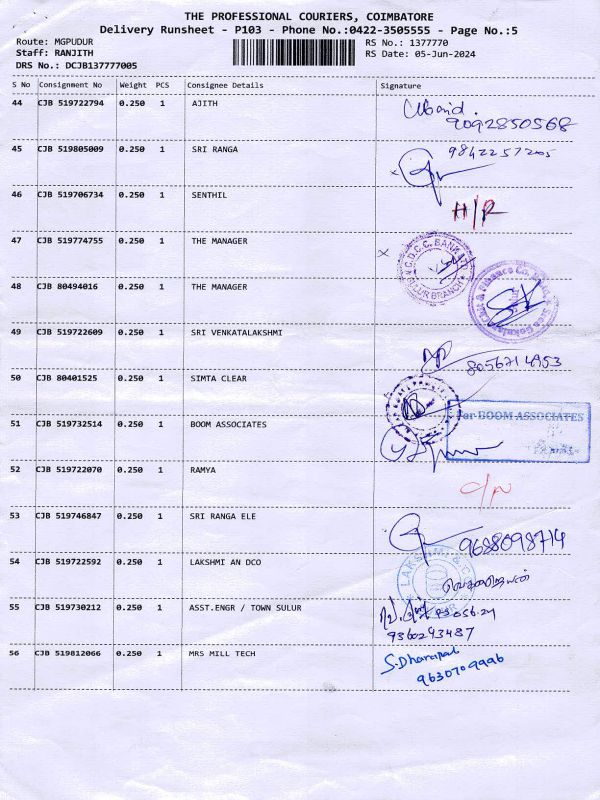 THE PROFESSIONAL COURIERS, COIMBATORE
Delivery Runsheet - P103 - Phone No.:0422-3505555 - Page No.:5
Route: MGPUDUR
Staff: RANJITH
DRS No.: DCJB137777005
RS No.: 1377770
RS Date: 05-Jun-2024
S No Consignment No Weight PCS Consignee Details Signature
44 CJB 519722794 0.250 1 AJITH
9092850568
45 CJB 519805009 0.250 1 SRI RANGA 9842257205
46 CJB 519706734 0.250 1 SENTHIL H/R
47 CJB 519774755 0.250 1 THE MANAGER
C.D.C.C. BANK
SULUR BRANCH
48 CJB 80494016 0.250 1 THE MANAGER
49 CJB 519722609 0.250 1 SRI VENKATALAKSHMI
8056714953
50 CJB 80401525 0.250 1 SIMTA CLEAR
51 CJB 519732514 0.250 1 BOOM ASSOCIATES
For BOOM ASSOCIATES
52 CJB 519722070 0.250 1 RAMYA
53 CJB 519746847 0.250 1 SRI RANGA ELE
9688098714
54 CJB 519722592 0.250 1 LAKSHMI AN DCO
LAKSHMI & CO
55 CJB 519730212 0.250 1 ASST.ENGR / TOWN SULUR
9360293487
56 CJB 519812066 0.250 1 MRS MILL TECH S.Dharapal
9630709996